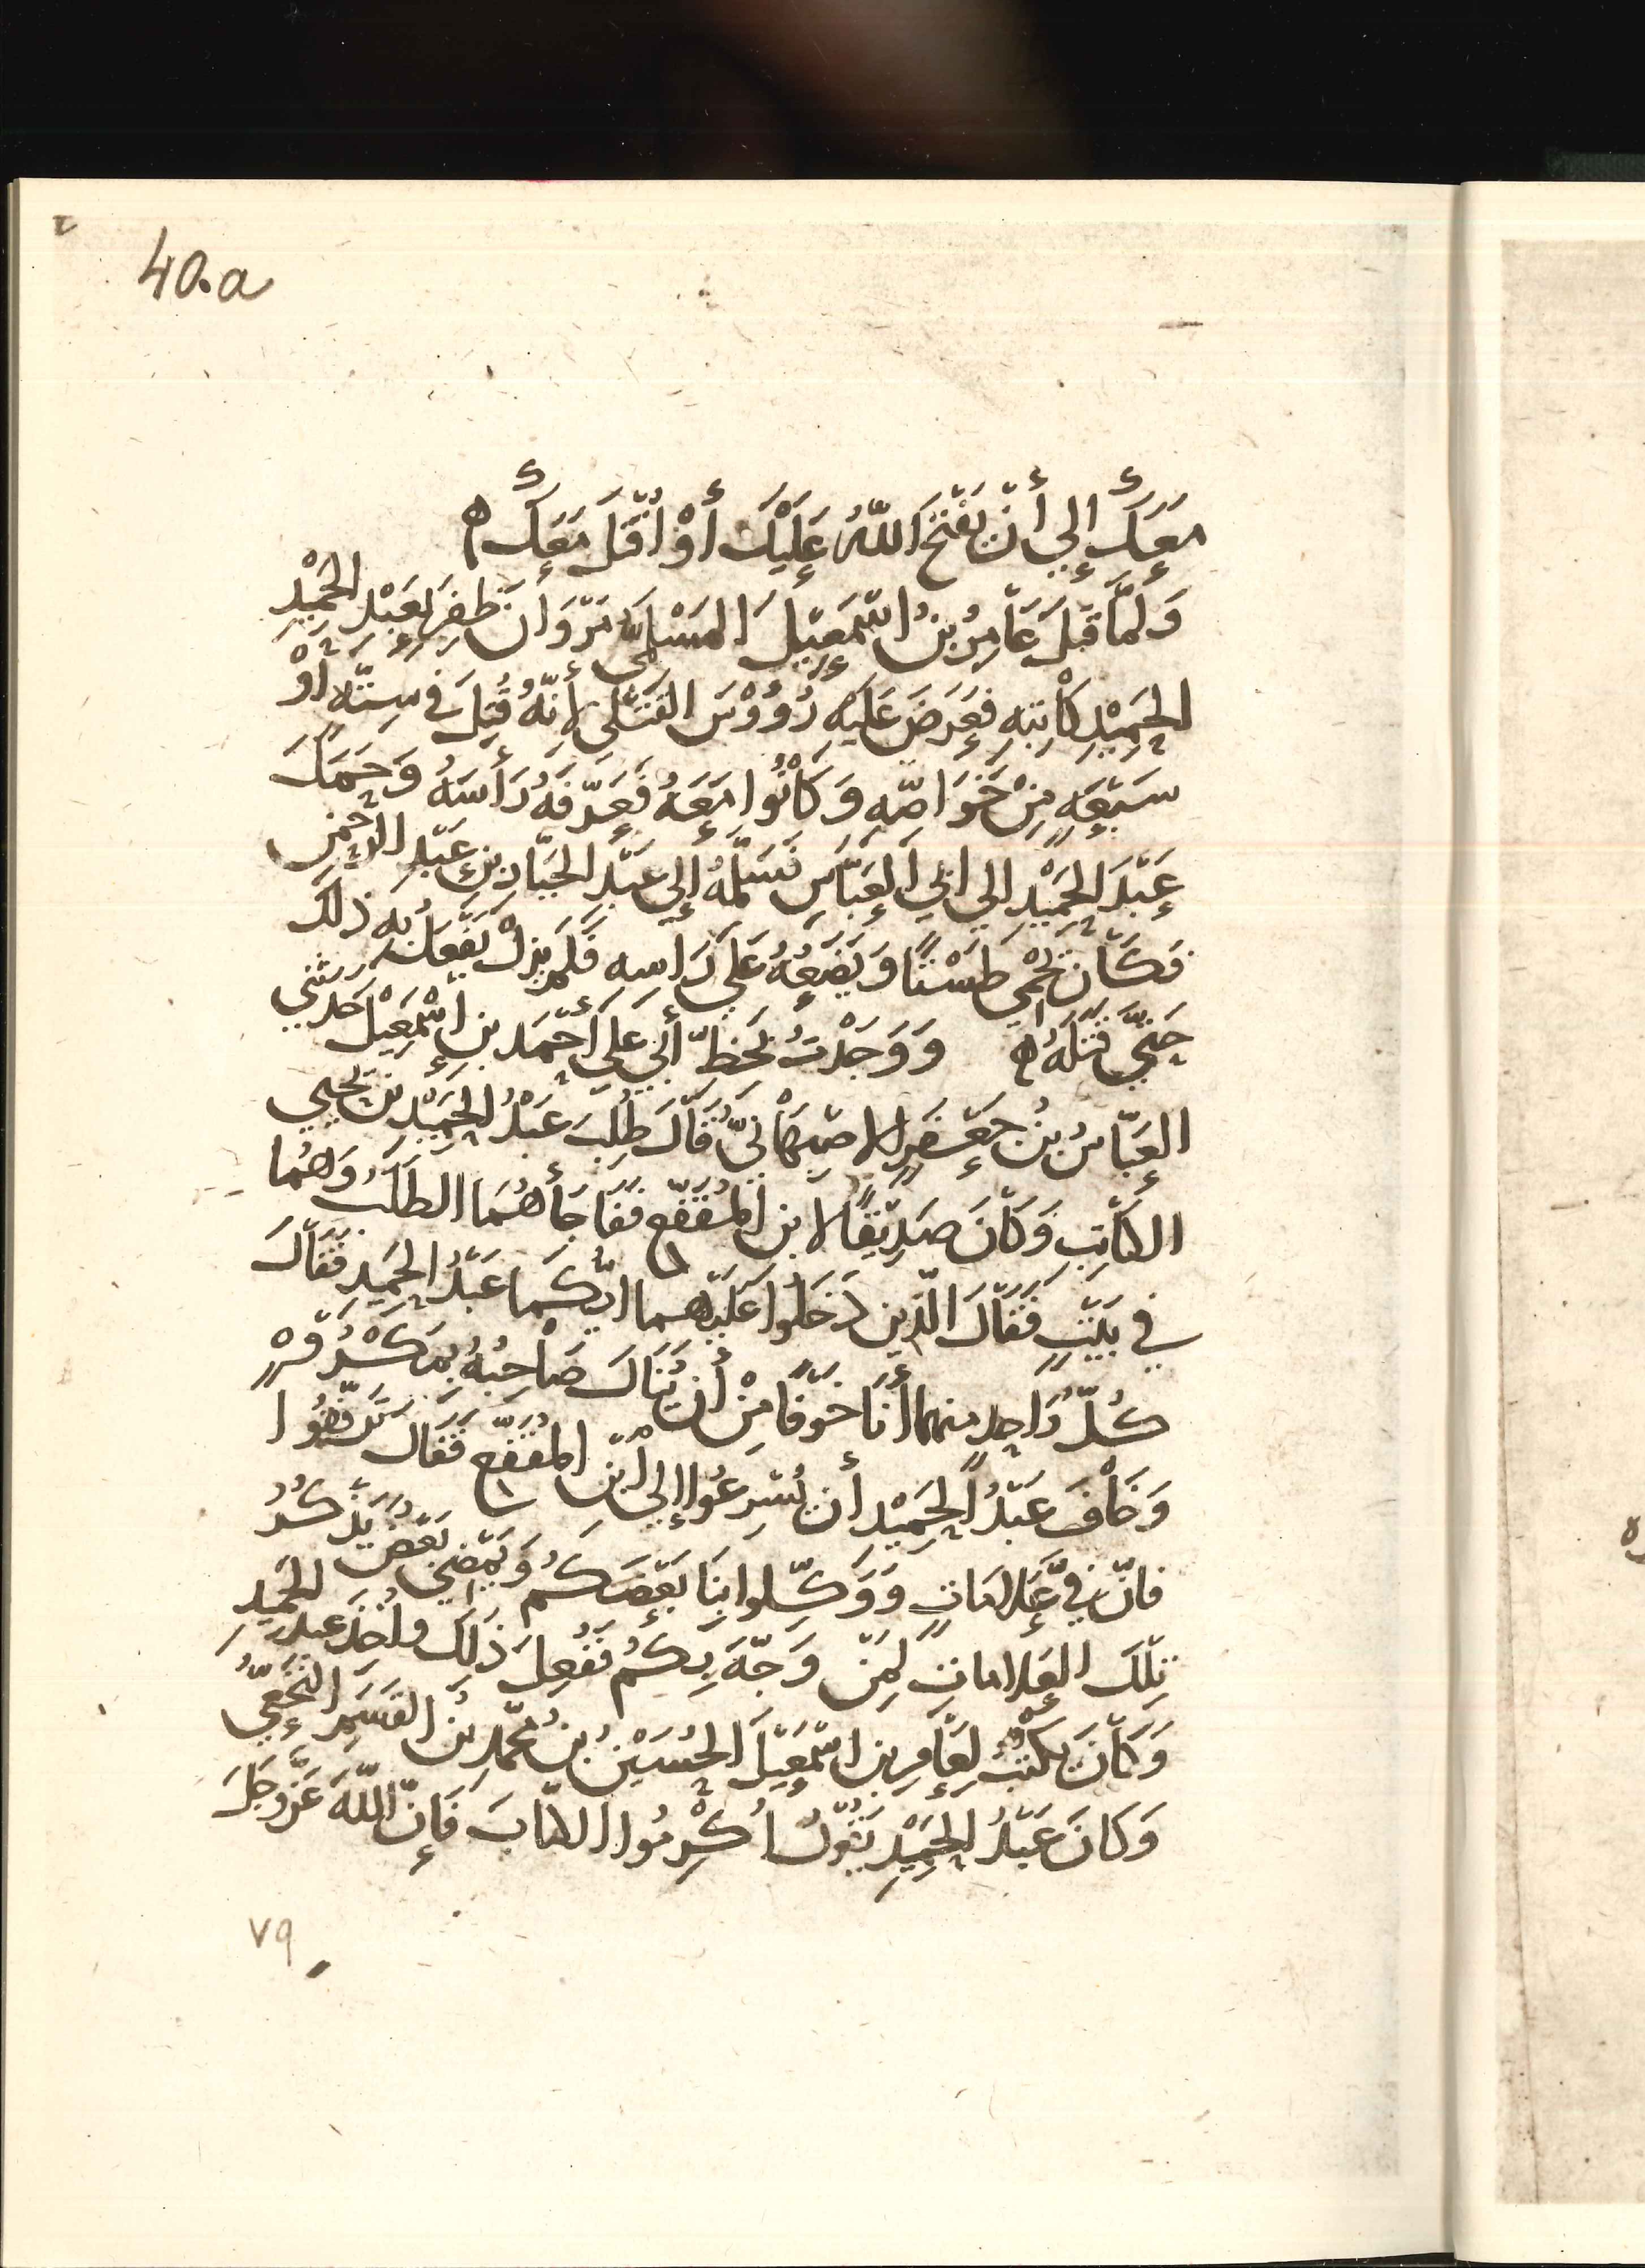 40.a
مَعَكَ إِلي أَنْ يَفْتَحَ اللّهُ عَلَيْكَ أَوْ اُقْتَلَ مَعَكَ ه
وَلَمَّا قَتَلَ عَامِرُ بنُ اسْمَعِيْلَ المَسْلِىُّ مَرْوَانَ ظفِرَ بِعَبْدِ الحَمِيْدِ
الحَمِيْدِ كَاتِبِهِ فَعَرَضَ عَلَيْهِ رُؤُوْسَ القَتْلَى لِأَنَّهُ قُتِلَ في سِتَّهٍ اَوْ
سَبْعَهٍ مِنْ خَوَاصِّهِ وَكَانُوا مَعَهُ فَعَرَّفَهُ رَأسَهُ وَحَمَلَ
عَبْدَ الحَمِيْدِ الي ابي العَبَّاسِ فَسَلَّمَهُ إلي عَبْدِ الجَبَّارِ بنِ عَبْدِ الرحمن
فَكَانَ يَحْمِي طَسْتًا وَيَضَعُهُ عَلَي رَاسِهِ فَلَم يزلْ يَفْعَلُ بِهِ ذلِكَ
حَتَّي قَتَلَهُ ه وَوَجَدْتُ بَخطّ أَبي عَلي أَحْمَد بنِ إسْمَعِيْلَ حَدثني
العَبّاسُ بنُ جَعْفَرٍ الاصْبَهَانيُّ قَالَ طُلِبَ عَبْدُ الحَمِيْدِ بنُ يَحْيي
الكَاتِب وَكَانَ صَدِيْقًا لابنِ المُقَفَّعِ فَفَاجَأَهُمَا الطَلَبُ وَهُمَا
في بَيْتٍ فَقَالَ الّذِين دَخَلُوا عَلَيْهِمَا ايُّكمَا عَبْدُ الحَمِيدِ فَقَالَ
كُلُّ وَاحِدٍ منهما أَنَا خَوْفًا مِنْ أَن يُنَالَ صَاحِبُهُ بِمَكْرُوْهٍ
وَخَافَ عَبْدُ الحَمِيْدِ أن يُسْرِعُوا إلي ابْنِ المُقَفَّعِ فَقَالَ تَرَفَّقُوا
فانّ فيَّ عَلَامَاتٍ وَوَكِّلوا بِنَا بَعْضَكُمْ وَيَمْضي بَعْضٌ يَذْكُرُ
تِلْكَ العَلامَاتِ لِمَنْ وَجَّهَ بِكُمْ فَفُعِلَ ذلِكَ وَاُخِذَ عبدُ الحَمِيدِ
وَكَانَ يَكتُبُ لِعَامِرِ بنِ اسْمَعِيْلَ الحُسَيْنُ بنُ مُحَّمدِ بْنِ القَسَمِ النَخَعِيُّ
وَكَانَ عَبْدُ الحَمِيْدِ يَقُوْلُ أَكْرِمُوا الكتّابَ فَإِنَّ اللّهَ عَزَّ وَجَلَ
٧٩